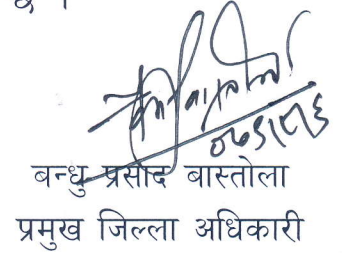 छ ।
बन्धु प्रसाद बास्तोला
प्रमुख जिल्ला अधिकारी